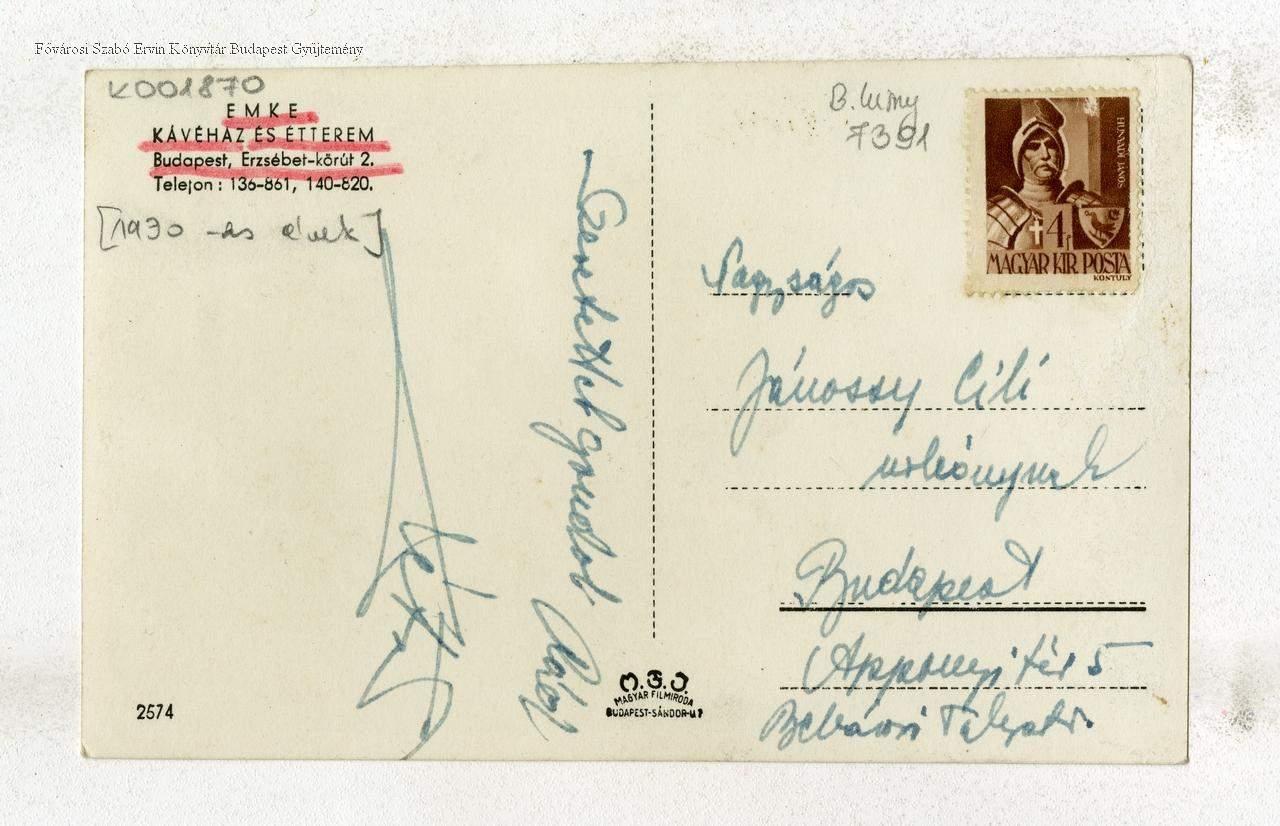 Fővárosi Szabó Ervin Könyvtár Budapest Gyűjtemény
K001870
EMKE
KÁVÉHÁZ ÉS ÉTTEREM
Budapest, Erzsébet-körút 2.
Telefon: 136-861, 140-820.
[1930-as évek]
Szeretettel gondol Rátok
2574
M.F.I.
MAGYAR FILMIRODA
BUDAPEST-SÁNDOR-U.7
7391
HUNYADI JÁNOS
4f
MAGYAR KIR. POSTA
KONTULY
Nagyságos
Jánossy Cili
úrleánynak
Budapest
Apponyi tér 5